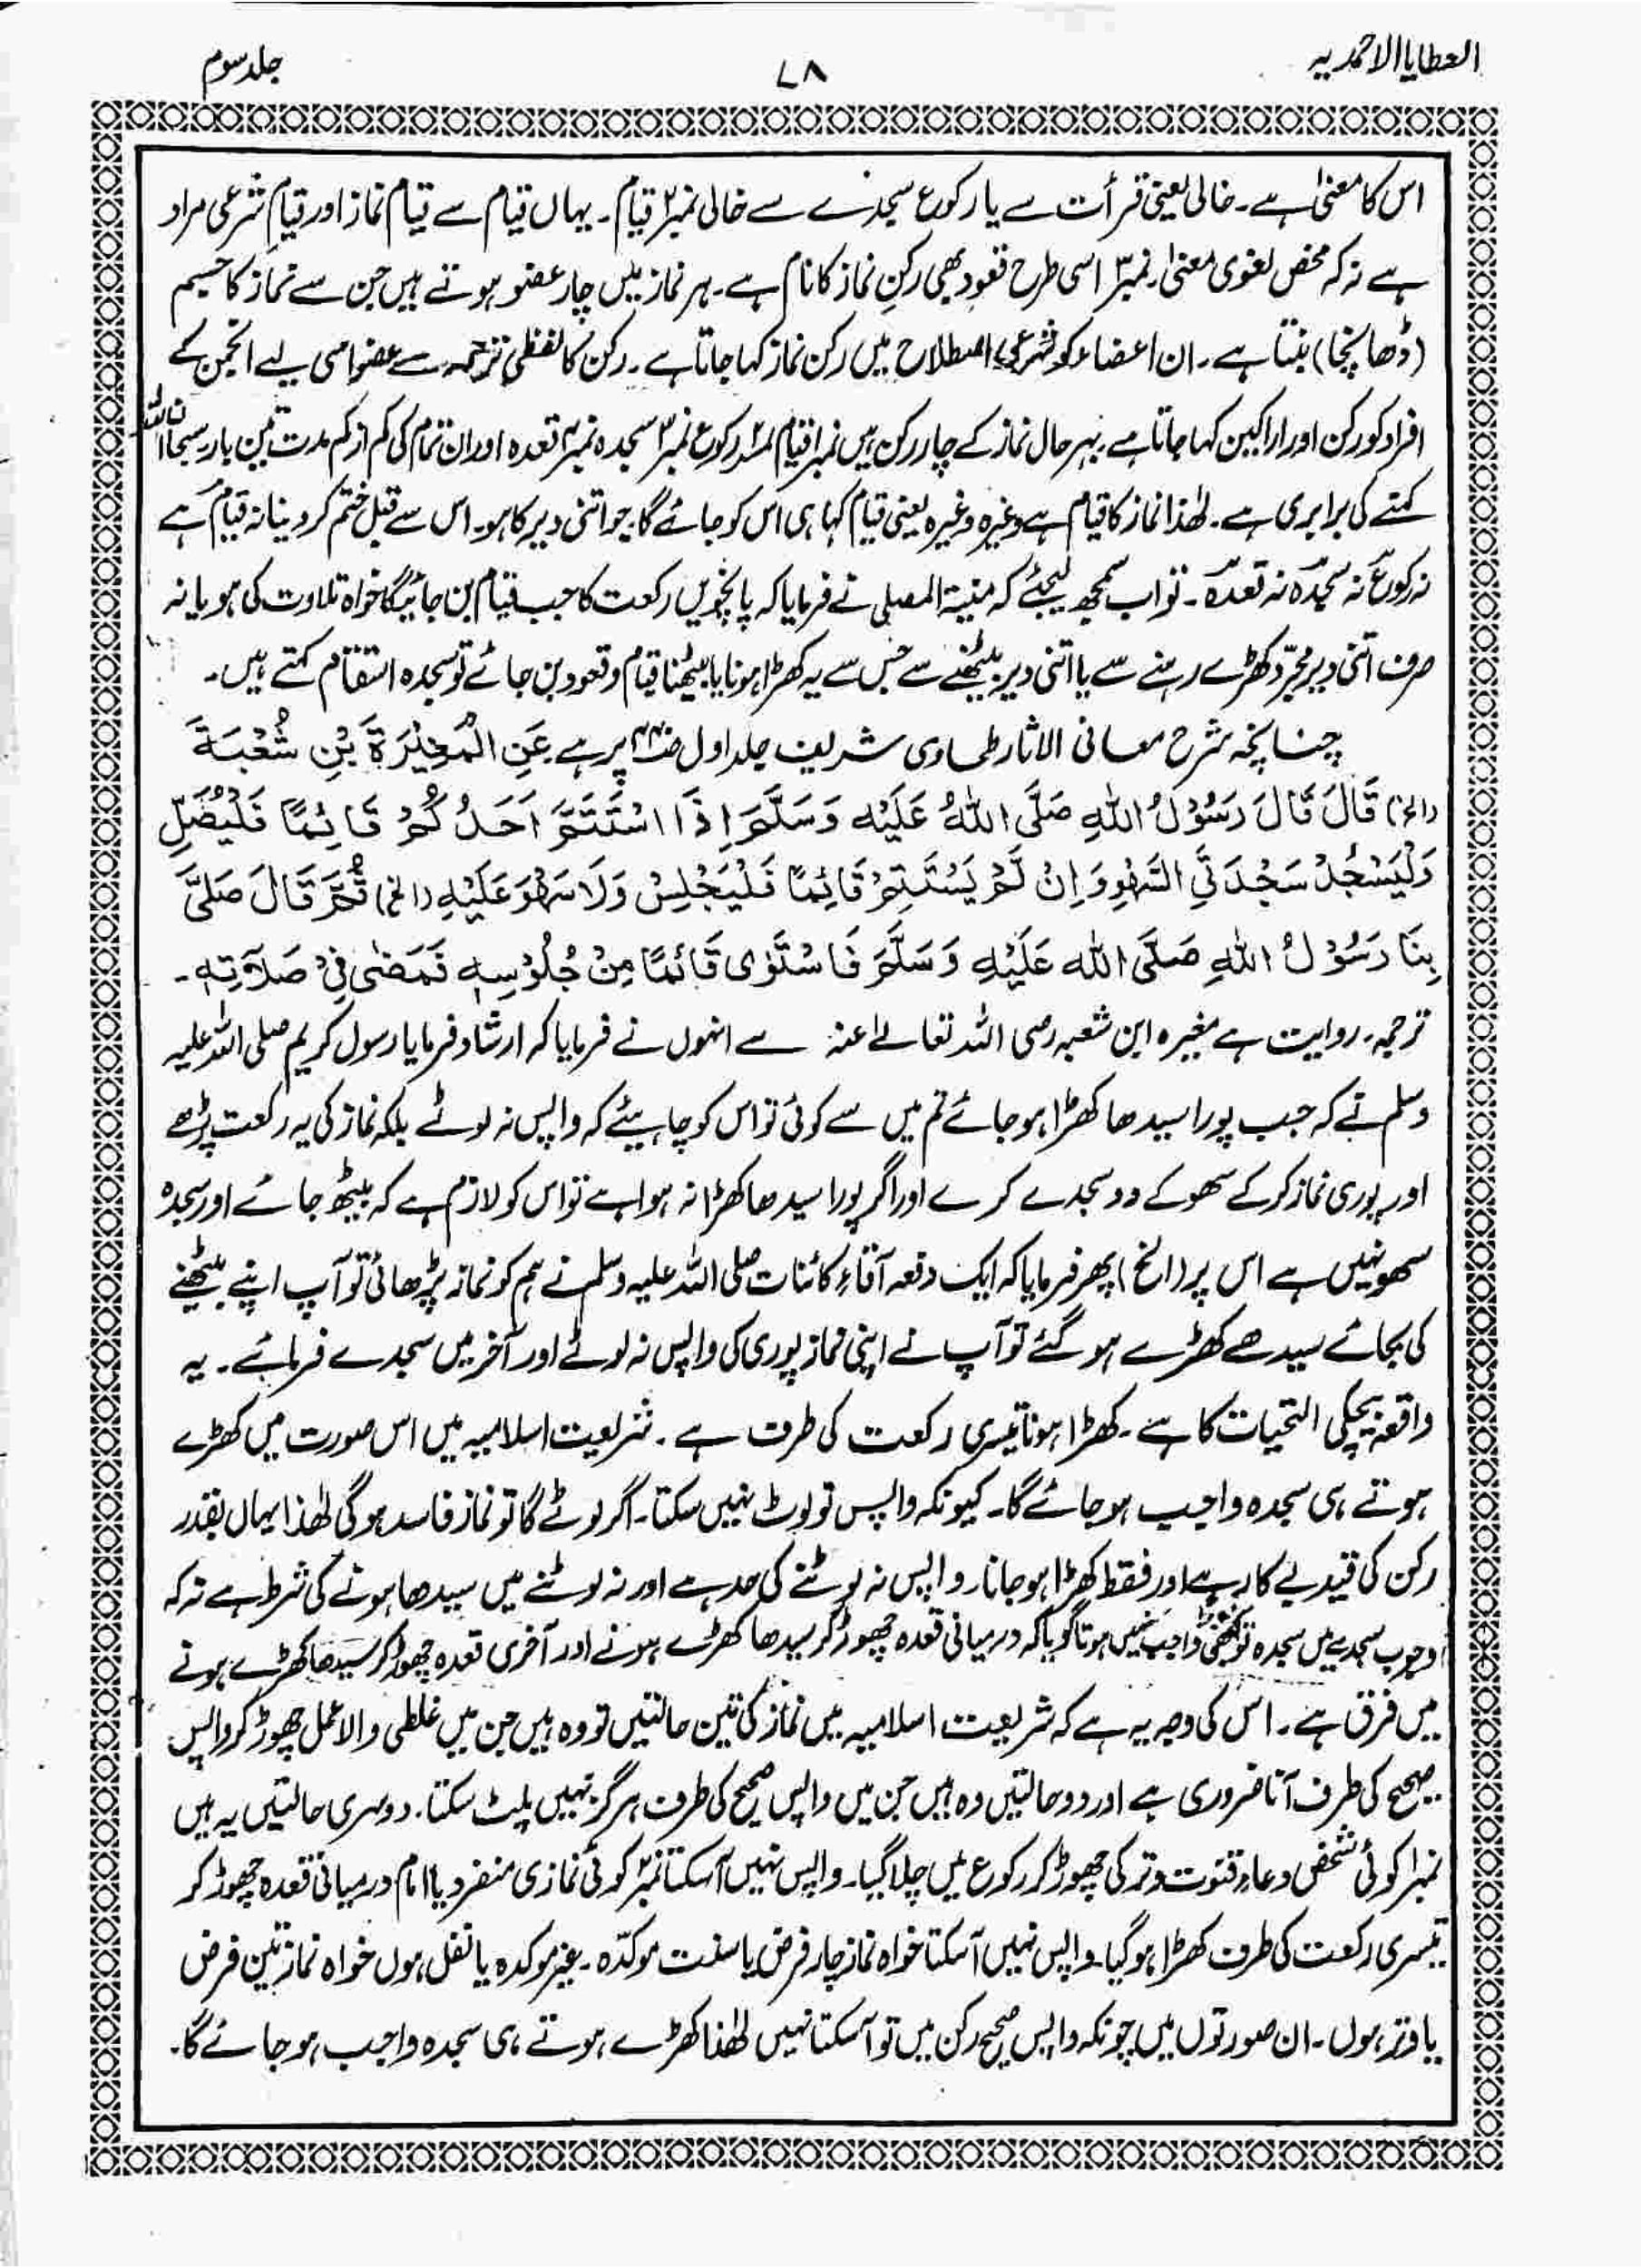 العطایا الاحمدیہ
۷۸
جلد سوم
اس کا معنیٰ ہے۔ خالی یعنی قرأت سے یا رکوع سجدے سے خالی نمبر۲ قیام۔ یہاں قیام سے قیام نماز اور قیامِ شرعی مراد
ہے نہ کہ محض لغوی معنیٰ۔ نمبر۳ اسی طرح قعود بھی رکنِ نماز کا نام ہے۔ ہر نماز میں چار عضو ہوتے ہیں جن سے نماز کا جسیم
(ڈھانچا) بنتا ہے۔ ان اعضاء کو شرعی اصطلاح میں رکن نماز کہا جاتا ہے۔ رکن کا لفظی ترجمہ ہے عضو اسی لیے انجمن کے
افراد کو رکن اور اراکین کہا جاتا ہے بہر حال نماز کے چار رکن ہیں نمبر۱ قیام نمبر۲ رکوع نمبر۳ سجدہ نمبر۴ قعدہ اور ان تمام کی کم از کم مدت تین بار سبحان اللہ
کہنے کی برابری ہے۔ لھٰذا نماز کا قیام ہے وغیرہ وغیرہ یعنی قیام کہا ہی اس کو جائے گا۔ جو اتنی دیر کا ہو۔ اس سے قبل ختم کر دینا نہ قیام ہے
نہ رکوع نہ سجدہ نہ قعدہ۔ تو اب سمجھ لیجئے کہ منیۃ المصلی نے فرمایا کہ پانچویں رکعت کا جب قیام بن جائیگا خواہ تلاوت کی ہو یا نہ
صرف اتنی دیر مجرّد کھڑے رہنے سے یا اتنی دیر بیٹھنے سے جس سے یہ کھڑا ہونا یا بیٹھنا قیام و قعود بن جائے تو سجدہ استقام کہتے ہیں۔
چنانچہ شرح معانی الاثار طحاوی شریف جلد اول پر ہے عَنِ الْمُغِيْرَةَ بْنِ شُعْبَةَ
(الخ) قَالَ قَالَ رَسُوْلُ اللہِ صَلَّى اللہُ عَلَيْهِ وَسَلَّمَ اِذَا اسْتَتَمَّ اَحَدُكُمْ قَائِمًا فَلْيُصَلِّ
وَلْيَسْجُدْ سَجْدَتَيِ السَّهْوِ وَاِنْ لَمْ يَسْتَتِمْ قَائِمًا فَلْيَجْلِسْ وَلَا سَهْوَ عَلَيْهِ (الخ) ثُمَّ قَالَ صَلَّى
بِنَا رَسُوْلُ اللہِ صَلَّى اللہ عَلَيْهِ وَسَلَّمَ فَاسْتَوٰى قَائِمًا مِنْ جُلُوْسِهٖ فَمَضٰى فِيْ صَلَاتِهٖ۔
ترجمہ۔ روایت ہے مغیرہ ابن شعبہ رضی اللہ تعالےٰ عنہ سے انہوں نے فرمایا کہ ارشاد فرمایا رسول کریم صلی اللہ علیہ
وسلم نے کہ جب پورا سیدھا کھڑا ہو جائے تم میں سے کوئی تو اس کو چاہیئے کہ واپس نہ لوٹے بلکہ نماز کی یہ رکعت پڑھے
اور پوری نماز کر کے سھو کے دو سجدے کرے اور اگر پورا سیدھا کھڑا نہ ہوا ہے تو اس کو لازم ہے کہ بیٹھ جائے اور سجدہ
سھو نہیں ہے اس پر (الخ) پھر فرمایا کہ ایک دفعہ آقاءِ کائنات صلی اللہ علیہ وسلم نے ہم کو نماز پڑھائی تو آپ اپنے بیٹھنے
کی بجائے سیدھے کھڑے ہو گئے تو آپ نے اپنی نماز پوری کی واپس نہ لوٹے اور آخر میں سجدے فرمائے۔ یہ
واقعہ بیچکی التحیات کا ہے۔ کھڑا ہونا تیسری رکعت کی طرف ہے۔ شریعت اسلامیہ میں اس صورت میں کھڑے
ہوتے ہی سجدہ واجب ہو جائے گا۔ کیونکہ واپس تو لوٹ نہیں سکتا۔ اگر لوٹے گا تو نماز فاسد ہو گی لھٰذا یہاں بقدر
رکن کی قید بے کار ہے اور فقط کھڑا ہو جانا۔ واپس نہ لوٹنے کی حد ہے اور نہ لوٹنے میں سیدھا ہونے کی شرط ہے نہ کہ
وجوب سجدے میں سجدہ تو واجب نہیں ہوتا گویا کہ درمیانی قعدہ چھوڑ کر سیدھا کھڑے ہونے اور آخری قعدہ چھوڑ کر سیدھا کھڑے ہونے
میں فرق ہے۔ اس کی وجہ یہ ہے کہ شریعت اسلامیہ میں نماز کی تین حالتیں تو وہ ہیں جن میں غلطی والا عمل چھوڑ کر واپس
صحیح کی طرف آنا ضروری ہے اور دو حالتیں وہ ہیں جن میں واپس صحیح کی طرف ہرگز نہیں پلٹ سکتا۔ دوسری حالتیں یہ ہیں
نمبر۱ کوئی شخص دعاءِ قنوت وتر کی چھوڑ کر رکوع میں چلا گیا۔ واپس نہیں آ سکتا نمبر۲ کوئی نمازی منفرد یا امام درمیانی قعدہ چھوڑ کر
تیسری رکعت کی طرف کھڑا ہو گیا۔ واپس نہیں آ سکتا خواہ نماز چار فرض یا سنت موکدّہ۔ غیر موکدہ یا نفل ہوں خواہ نماز تین فرض
یا وتر ہوں۔ ان صورتوں میں چونکہ واپس صحیح رکن میں تو آ سکتا نہیں لھٰذا کھڑے ہوتے ہی سجدہ واجب ہو جائے گا۔